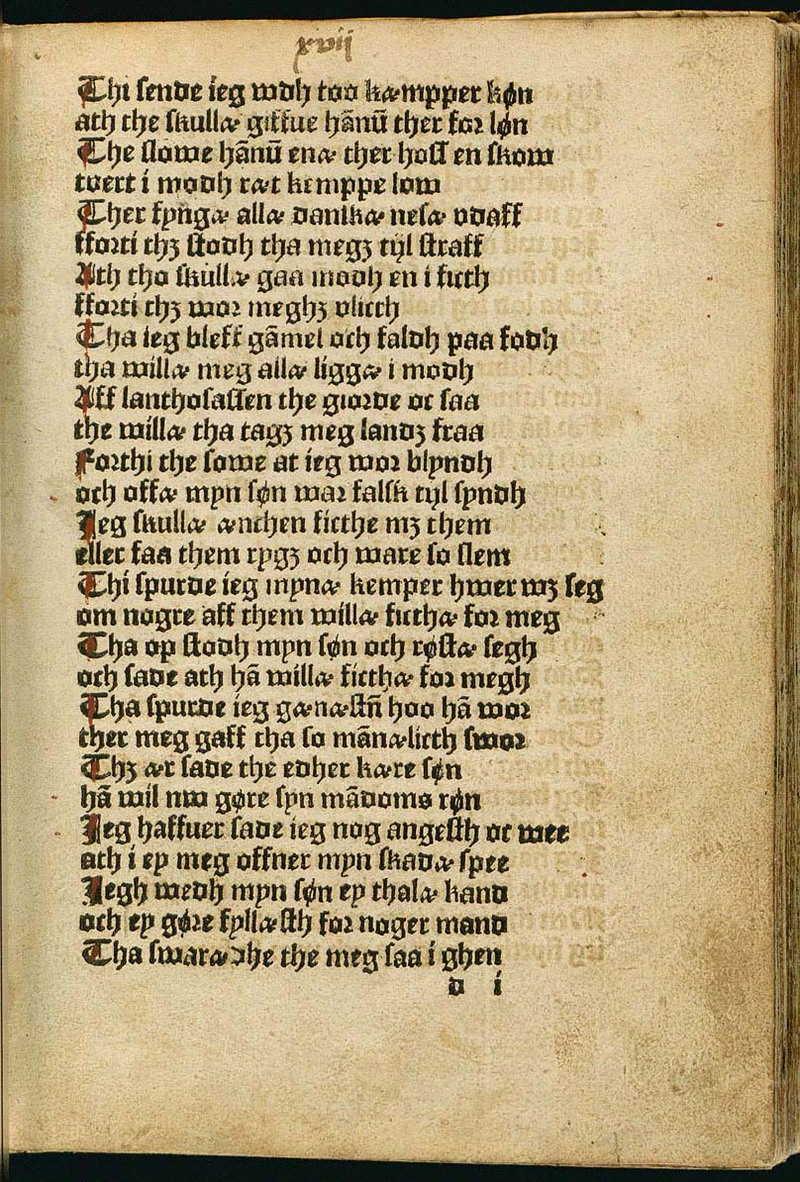 xvij
Thi sende ieg wdh too kæmpper køn
ath the skullæ giffue hānū ther for løn
The slowe hānū enæ ther hoss en skow
tvert i modh ræt kemppe low
Ther fyngæ allæ danskæ nesæ vdaff
fforti thꝫ stodh tha megꝫ tyl straff
Ath tho skullæ gaa modh en i ficth
fforti thꝫ wor meghꝫ vlicth
Tha ieg bleff gāmel och faldh paa fodh
tha willæ meg allæ liggæ i modh
Aff lanthosassen the giorde oc saa
the willæ tha tagꝫ meg landꝫ fraa
Forthi the sowe at ieg wor blyndh
och offæ myn søn war falsk tyl syndh
Jeg skullæ ænthen ficthe mꝫ them
eller faa them rygꝫ och ware so slem
Thi spurde ieg mynæ kemper hwer wꝫ seg
om nogre aff them willæ ficthæ for meg
Tha op stodh myn søn och røstæ segh
och sade ath hā willæ ficthæ for megh
Tha spurde ieg gænæstn̄ hoo hā wor
ther meg gaff tha so mānælicth swor
Thꝫ ær sade the edher kære søn
hā wil nw gøre syn mādoms røn
Jeg haffuer sade ieg nog angesth oc wee
ath i ey meg offner myn skadæ spee
Jegh wedh myn søn ey thalæ kand
och ey gøre fyllæsth for noger mand
Tha swaræдhe the meg saa i ghen
d i